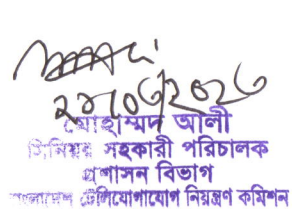 ২৯/০৬/২০২৩
মোহাম্মদ আলী
সিনিয়র সহকারী পরিচালক
প্রশাসন বিভাগ
বাংলাদেশ টেলিযোগাযোগ নিয়ন্ত্রণ কমিশন